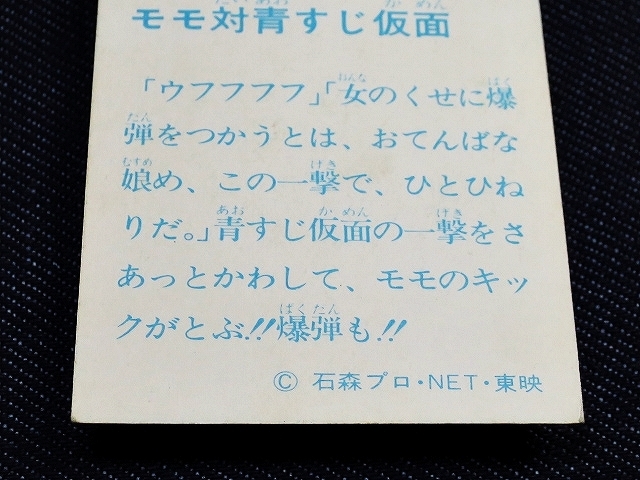 モモ対青すじ仮面
「ウフフフフ」「女のくせに爆
弾をつかうとは、おてんばな
娘め、この一撃で、ひとひね
りだ。」青すじ仮面の一撃をさ
あっとかわして、モモのキッ
クがとぶ!!爆弾も!!
© 石森プロ・NET・東映